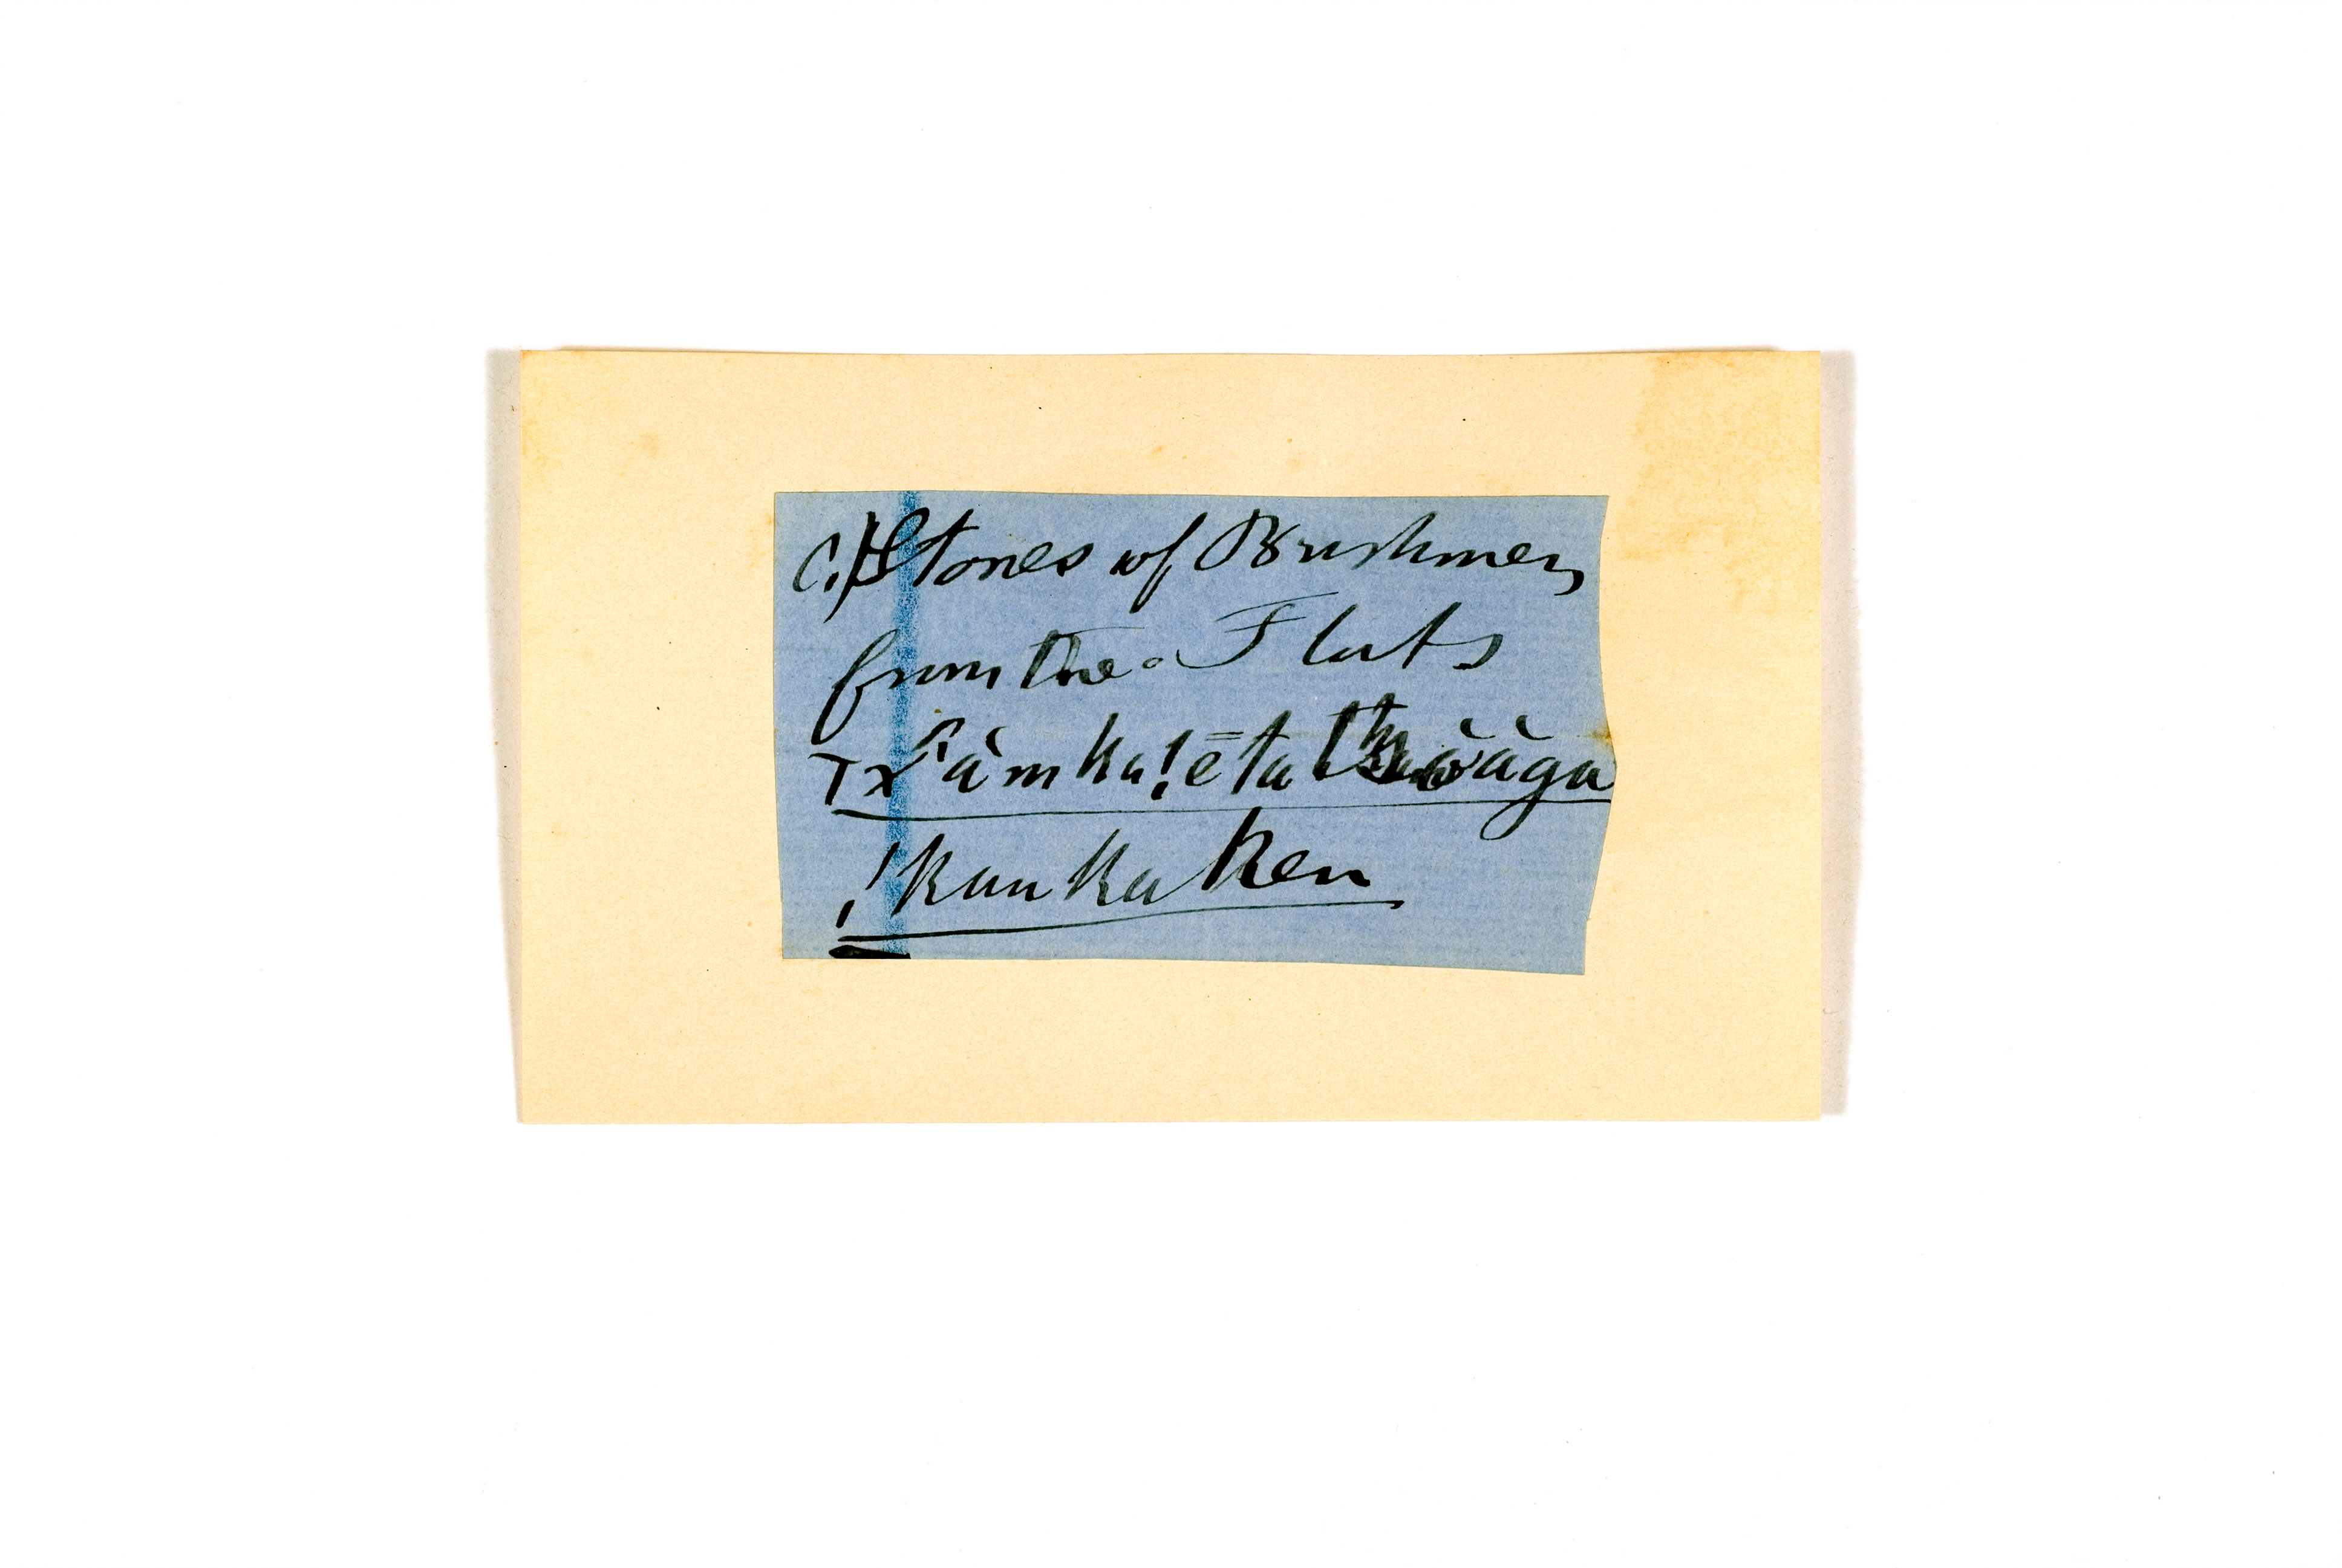 C. Stones of Bushmen
from the Flats
ka !ē ta
!kau ka ken